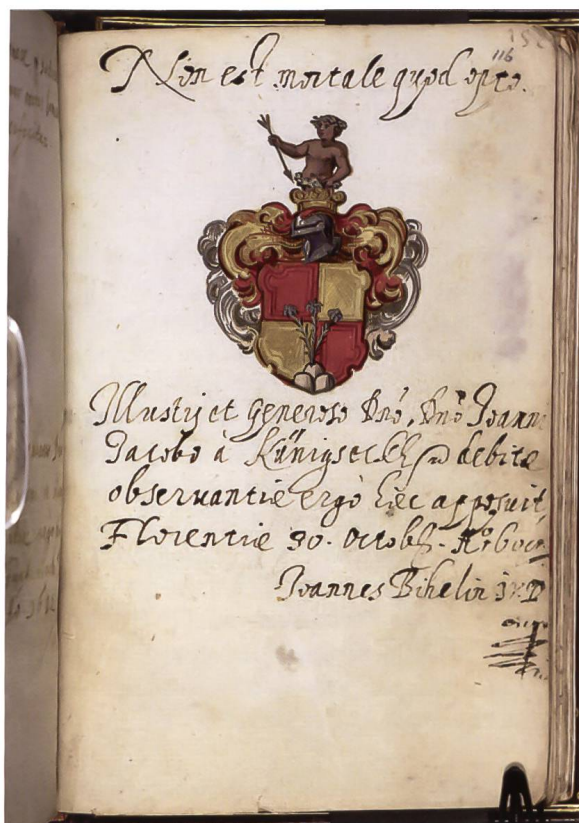 116
Non est mortale quod opto.
Illustri et generoso Dnō, Dnō Joanni
Jacobo à Künigseckh debitæ
obseruantiæ ergò hæc apposuit
Florentiæ 30. Octob.
Joannes Bihelin